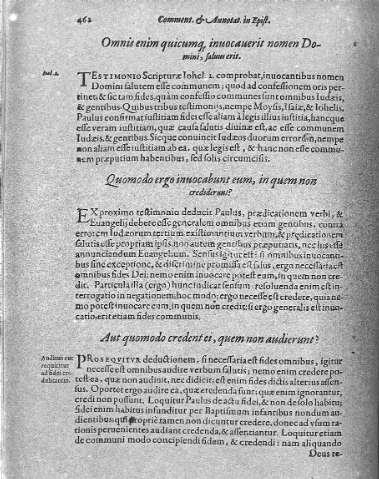 462 Comment. & Annotat. in Epist.
Omnis enim quicumq, inuocauerit nomen Do-
mini, saluus erit.
Iohel. 2.
TESTIMONIO Scripturæ Iohel 2. comprobat, inuocantibus nomen
Domini salutem esse communem: quod ad confessionem oris per-
tinet: & sic tam fides, quàm confessio communes sunt omnibus Iudæis,
& gentibus. Quibus tribus testimonijs, nempe Moysis, Isaiæ, & Iohelis,
Paulus confirmat iustitiam fidei esse aliam à legis illius iustitia, hancque
esse veram iustitiam, quæ causa salutis diuinæ est, ac esse communem
Iudæis, & gentibus. Sicque conuincit Iudæos duorum errorum, nempe
non aliam esse iustitiam ab ea, quæ legis est, & hanc non esse commu-
nem præputium habentibus, sed solis circumcisis.
Quomodo ergo inuocabunt eum, in quem non
crediderunt?
EX proximo testimonio deducit Paulus, prædicationem verbi, &
Euangelij debere esse generalem omnibus etiam gentibus, contra
errorem Iudæorum tertium, existimantium verbum, & prædicationem
salutis esse propriam ipsis, non autem gentibus præputiatis, nec ius esse
annunciendum Euangelium. Sensus igitur est: si omnibus inuocanti-
bus sine exceptione, & discrimine promissa est salus, ergo necessaria est
omnibus fides Dei: nemo enim inuocare potest eum, in quem non cre-
dit. Particula illa (ergo) hunc indicat sensum: resoluenda enim est in-
terrogatio in negationem, hoc modo; ergo necesse est credere, quia ne-
mo potest inuocare eum, in quem non credit: si ergo generalis est inuo-
catio, erit etiam fides communis.
Aut quomodo credent ei, quem non audierunt?
Auditum cur
requiratur
ad fidei cre-
dulitatem.
PROSEQVITVR deductionem, si necessaria est fides omnibus, igitur
necesse est omnibus audire verbum salutis; nemo enim credere po-
test ea, quæ non audiuit, nec didicit: est enim fides dictis alterius assen-
sus. Oportet ergo audire ea, quæ credenda sunt: quæ enim ignorantur,
credi non possunt. Loquitur Paulus de actu fidei, & non de solo habitu;
fidei enim habitus infunditur per Baptismum infantibus nondum au-
dientibus qui propriè tamen non dicuntur credere, donec ad vsum ra-
tionis peruenientes audiant credenda, & assentantur. Loquitur etiam
de communi modo concipiendi fidem, & credendi: nam aliquando
Deus re-